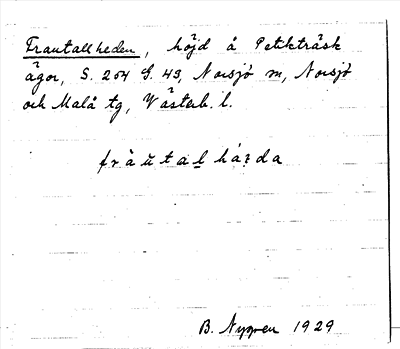 Frautallheden, höjd å Petikträsk
ägor, S. 254 G. 43, Norsjö sn, Norsjö
och Malå tg, Västerb. l.
fràu̇talhá:da
B. Nygren 1929